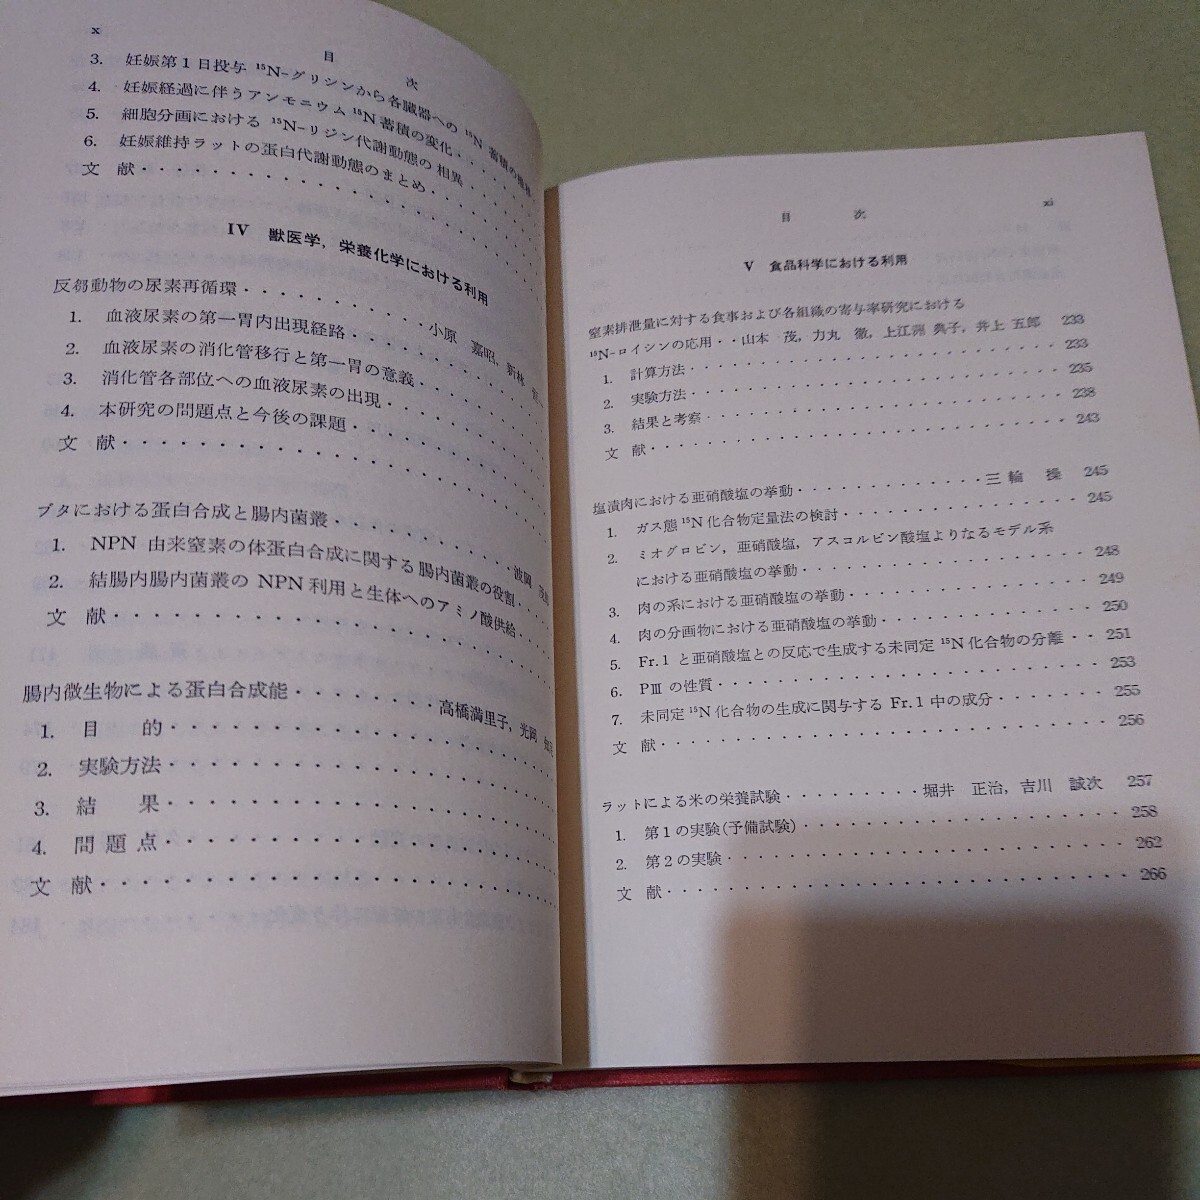 x
目 次
3. 妊娠第1日投与 ¹⁵N-グリシンから各臓器への ¹⁵N 蓄積の
4. 妊娠経過に伴うアンモニウム ¹⁵N 蓄積の変化・・
5. 細胞分画における ¹⁵N-リジン代謝動態の相異・・・
6. 妊娠維持ラットの蛋白代謝動態のまとめ・・・・
文 献・・・・・・・・・・・・・・・
IV 獣医学，栄養化学における利用
反芻動物の尿素再循環・・・・・・・・小原 嘉昭，新林
1. 血液尿素の第一胃内出現経路・・・・・・・・
2. 血液尿素の消化管移行と第一胃の意義・・・・・
3. 消化管各部位への血液尿素の出現・・・・・・
4. 本研究の問題点と今後の課題・・・・・・・・
文 献・・・・・・・・・・・・・・・
ブタにおける蛋白合成と腸内菌叢・・・・・・・・波岡
1. NPN 由来窒素の体蛋白合成に関する腸内菌叢の役割・・
2. 結腸内腸内菌叢の NPN 利用と生体へのアミノ酸供給・・
文 献・・・・・・・・・・・・・・・
腸内微生物による蛋白合成能・・・・・・高橋満里子，光岡
1. 目 的・・・・・・・・・・・・・・
2. 実験方法・・・・・・・・・・・・・・
3. 結 果・・・・・・・・・・・・・・
4. 問題点・・・・・・・・・・・・・・
文 献・・・・・・・・・・・・・・・
目 次 xi
V 食品科学における利用
窒素排泄量に対する食事および各組織の寄与率研究における
¹⁵N-ロイシンの応用・・山本 茂，力丸 徹，上江洲 典子，井上 五郎 233
1. 計算方法・・・・・・・・・・・・・・ 233
2. 実験方法・・・・・・・・・・・・・・ 235
3. 結果と考察・・・・・・・・・・・・・ 238
文 献・・・・・・・・・・・・・・・ 243
塩漬肉における亜硝酸塩の挙動・・・・・・・・三輪 操 245
1. ガス態 ¹⁵N 化合物定量法の検討・・・・・・・・ 245
2. ミオグロビン，亜硝酸塩，アスコルビン酸塩よりなるモデル系
における亜硝酸塩の挙動・・・・・・・・・・ 248
3. 肉の系における亜硝酸塩の挙動・・・・・・・・ 249
4. 肉の分画物における亜硝酸塩の挙動・・・・・・・ 250
5. Fr.1 と亜硝酸塩との反応で生成する未同定 ¹⁵N 化合物の分離・・ 251
6. PⅢ の性質・・・・・・・・・・・・・ 253
7. 未同定 ¹⁵N 化合物の生成に関与する Fr.1 中の成分・・・・ 255
文 献・・・・・・・・・・・・・・・ 256
ラットによる米の栄養試験・・・・・・・堀井 正治，吉川 誠次 257
1. 第1の実験(予備試験)・・・・・・・・・・・ 258
2. 第2の実験・・・・・・・・・・・・・ 262
文 献・・・・・・・・・・・・・・・ 266